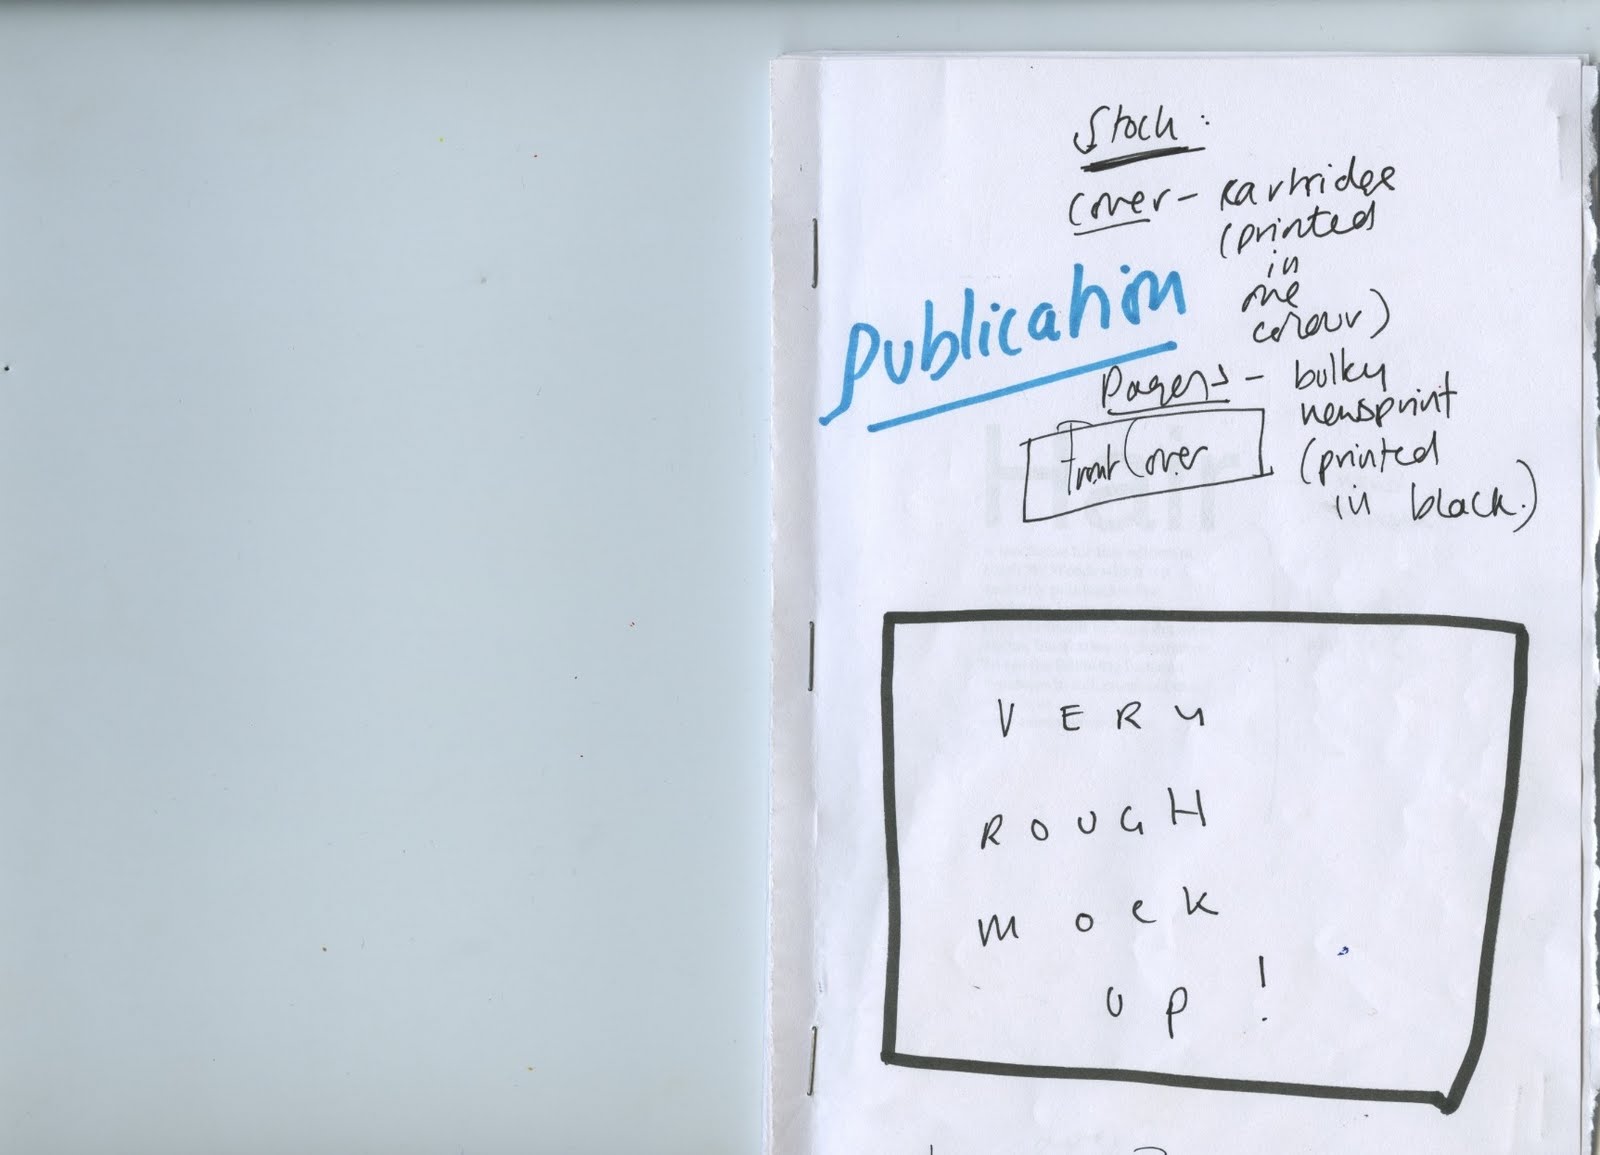 Stock:
Cover – Cartridge
(printed
in
one
colour)
Publication
Pages – bulky
newsprint
(printed
in black.)
Front Cover
Hair
VERY
ROUGH
MOCK
UP!